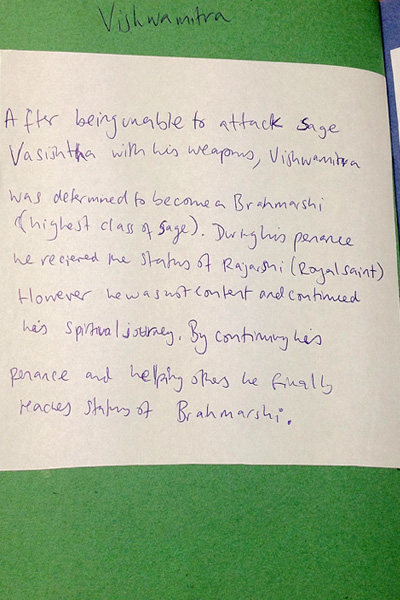 Vishwamitra
After being unable to attack sage
Vasishtha with his weapons, Vishwamitra
was determined to become a Brahmarshi
(highest class of sage). During his penance
he recieved the status of Rajarshi (Royal saint)
However he was not content and continued
his spiritual journey. By continuing his
penance and helping others he finally
reaches status of Brahmarshi.